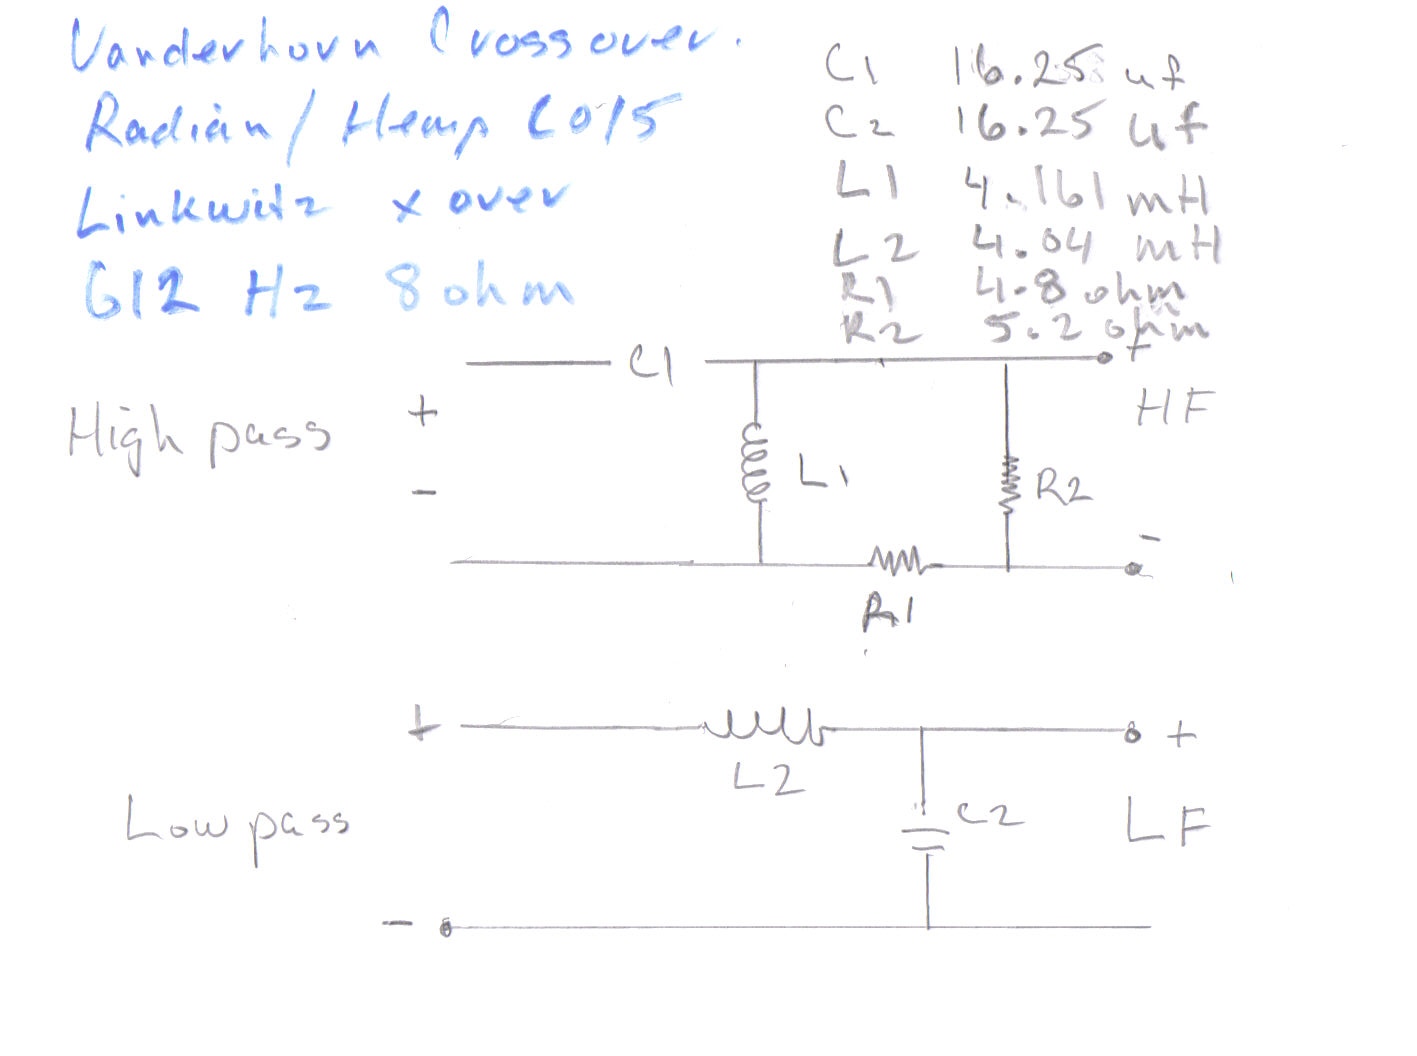 Vanderhorn Crossover.
Radian / Hemp CO15
Linkwitz xover
612 Hz 8 ohm
C1 16.25 uf
C2 16.25 uf
L1 4.161 mH
L2 4.04 mH
R1 4.8 ohm
R2 5.2 ohm
C1
+
High pass
+
HF
-
L1
R2
-
R1
+
L2
+
Low pass
C2
LF
-